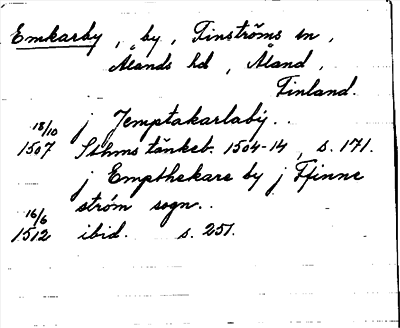 Emkarby, by, Finströms sn,
Ålands hd, Åland,
Finland.
j Jemptakarlaby..
18/10
1507 Sthms tänkeb. 1504-14, s. 171.
j Empthekare by j Ffinne
ström sogn..
16/6
1512 ibid. s. 251.